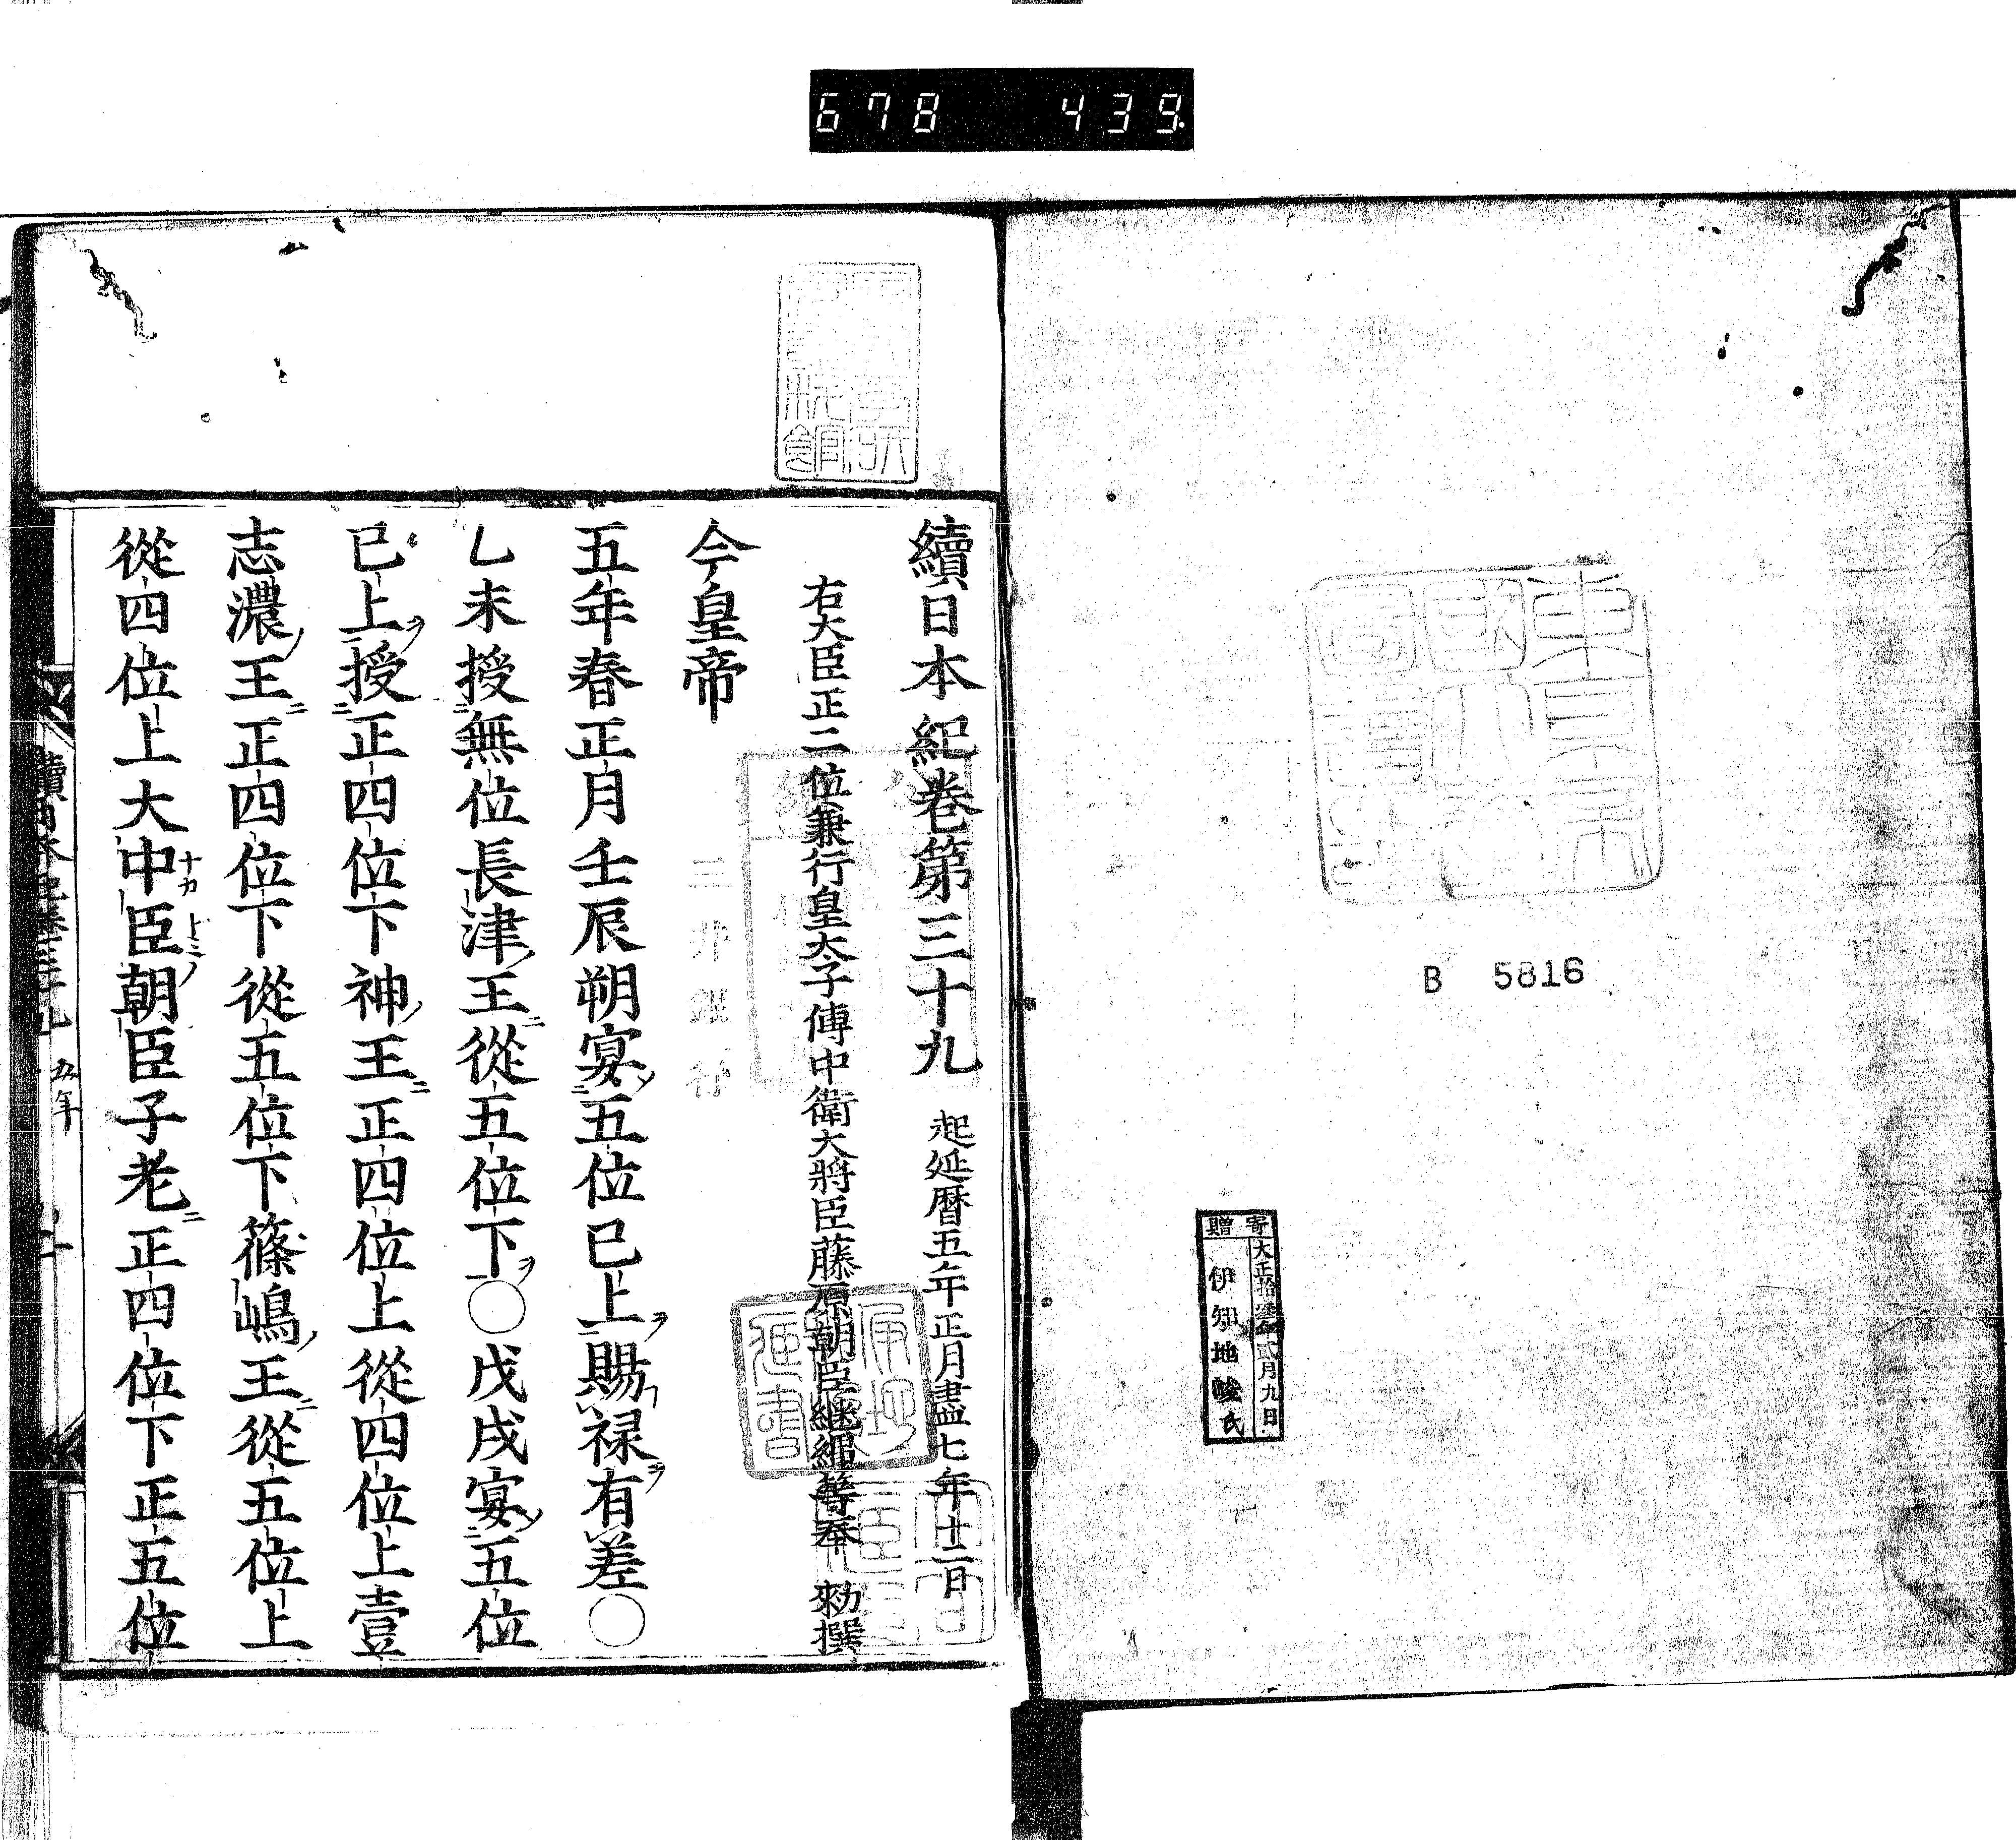 678 439
B 5816
寄贈
大正拾參年貳月九日
伊知地 氏
續日本紀卷第三十九 起延暦五年正月盡七年十二月
右大臣正二位兼行皇太子傅中衛大將臣藤原朝臣繼繩等奉 勅撰
今皇帝
五年春正月壬辰朔宴五位已上賜祿有差○
乙未授無位長津王從五位下○戊戌宴五位
已上授正四位下神王正四位上從四位上壹
志濃王正四位下從五位下篠嶋王從五位上
從四位上大中臣朝臣子老正四位下正五位
續日本紀卷三十九 五年